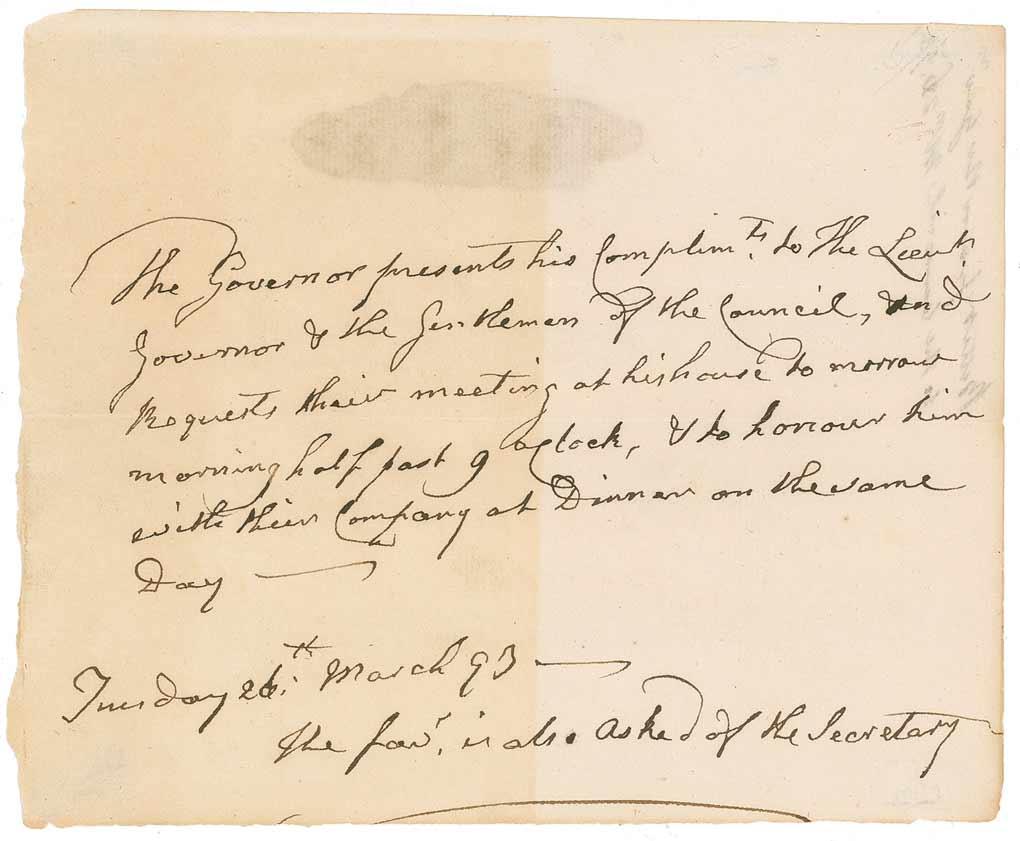 The Governor presents his Complim.ts to The Lieut.
Governor & the Gentlemen of the Council, and
Requests their meeting at his house to morrow
morning half past 9 oClock, & to honour him
with their Company at Dinner on the same
Day —
Tuesday 26.th March 93 —
The fav.r is also asked of the Secretary